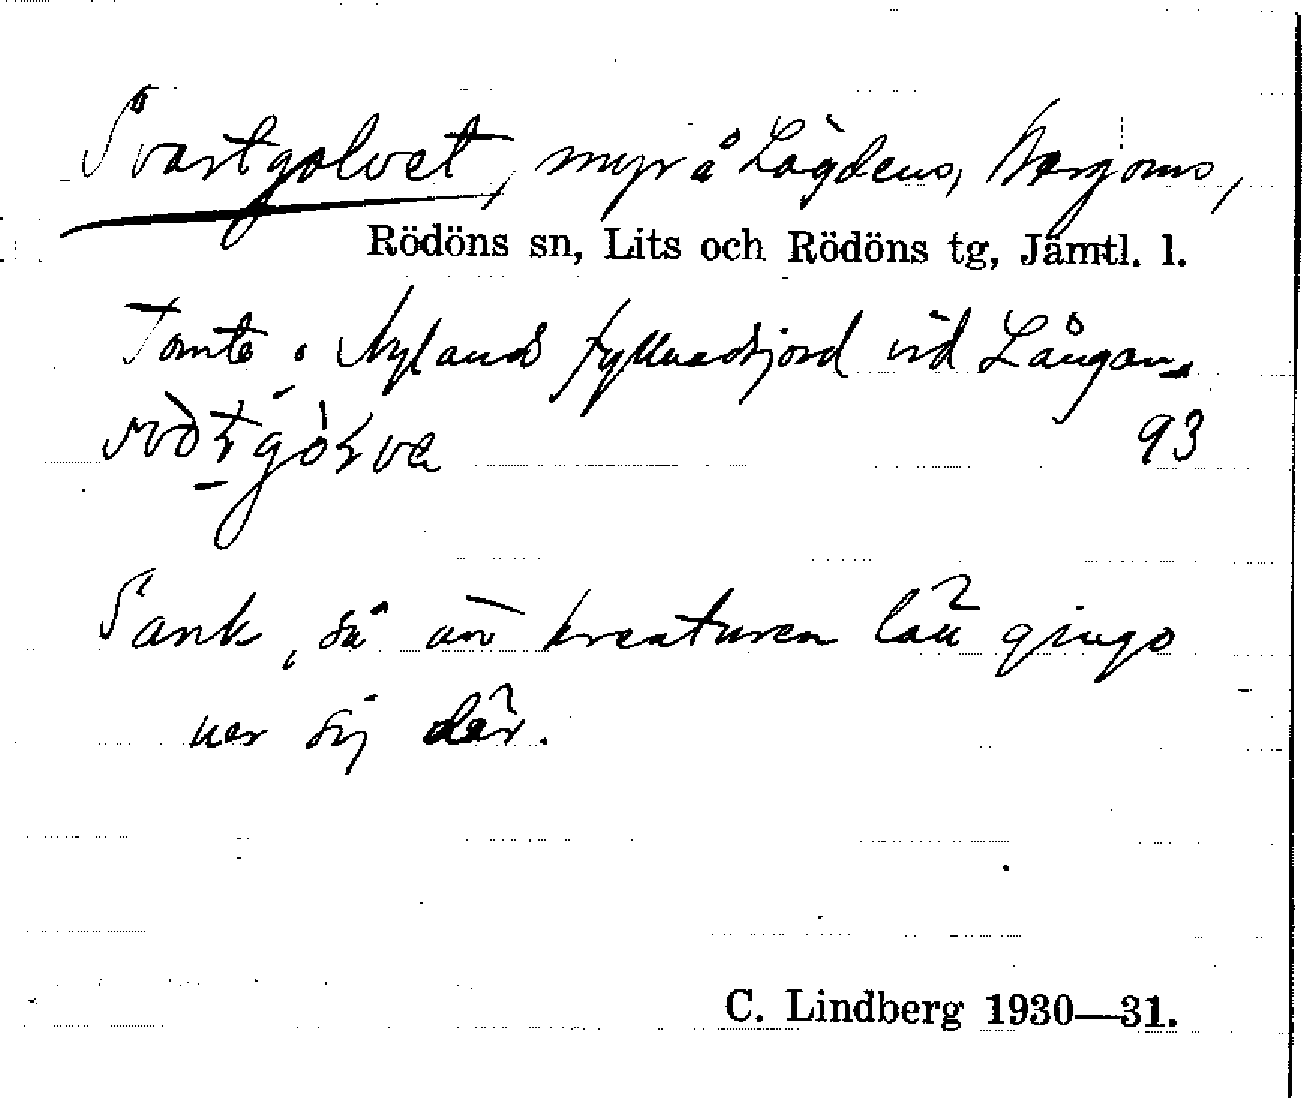 Svartgolvet, myr å Lägdens, Bergoms,
Rödöns sn, Lits och Rödöns tg, Jämtl. l.
Tomte i Nylands fyllnadsjord vid Långan.
93
Sank, så än kreaturen lätt gingo
ner sig där.
C. Lindberg 1930—31.